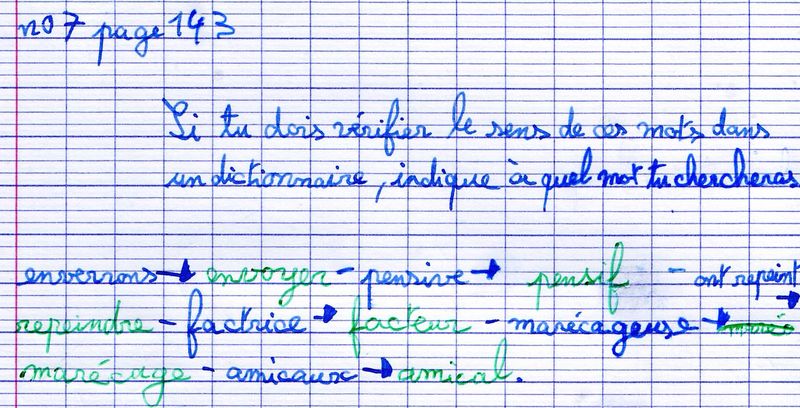 no 7 page 143
Si tu dois vérifier le sens de ces mots dans
un dictionnaire, indique à quel mot tu chercheras
enverrons → envoyer - pensive → pensif - ont repeint →
repeindre - factrice → facteur - marécageuse →
marécage - amicaux → amical.